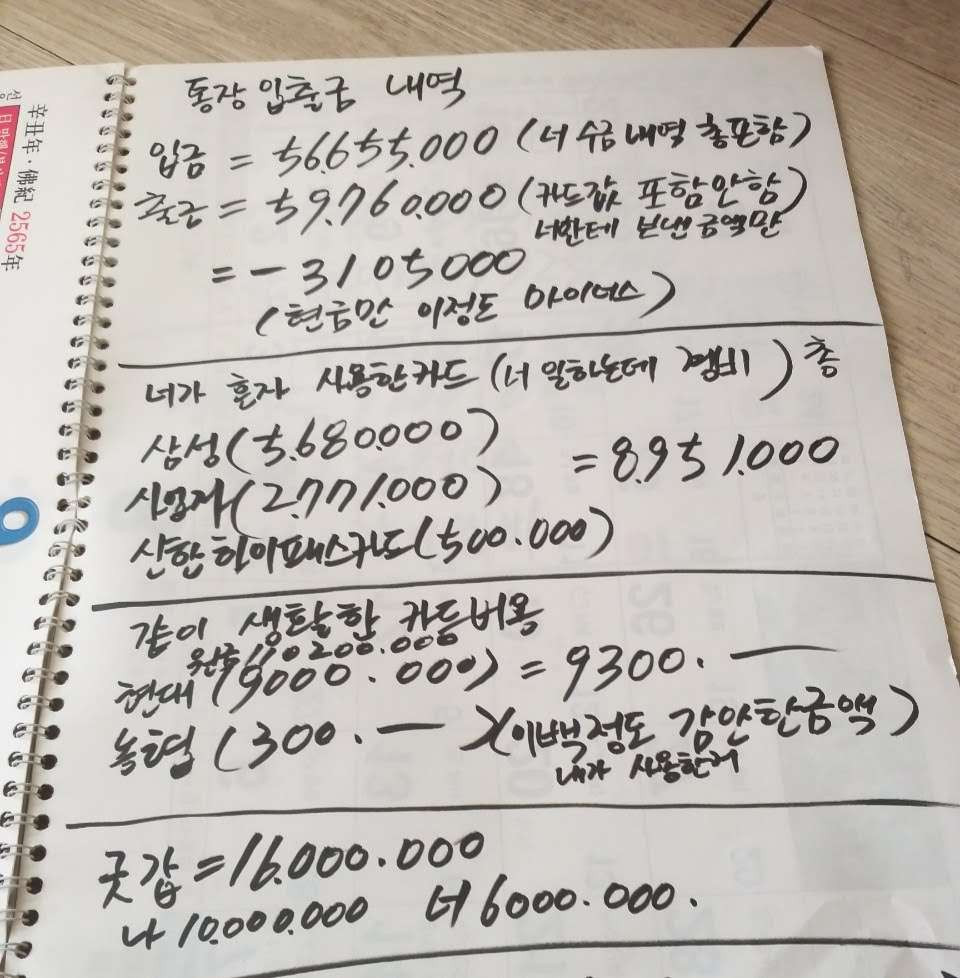 辛丑年·佛紀 2565年
통장 입출금 내역
입금 = 56.655.000 (너 수금 내역 총포함)
출금 = 59.760.000 (카드값 포함안함)
너한테 보낸 금액만
= - 3105000
(현금만 이정도 마이너스)
너가 혼자 사용한카드 (너 일하는데 경비) 총
삼성 (5.680.000)
= 8.951.000
사업자 (2.771.000)
신한 하이패스카드 (500.000)
같이 생활한 카등버용
10200.000
현대 (9000.000) = 9300. —
농협 (300. — ) (이백정도 감안한금액)
내가 사용한거
굿값 = 16.000.000
나 10.000.000 너 6000.000.